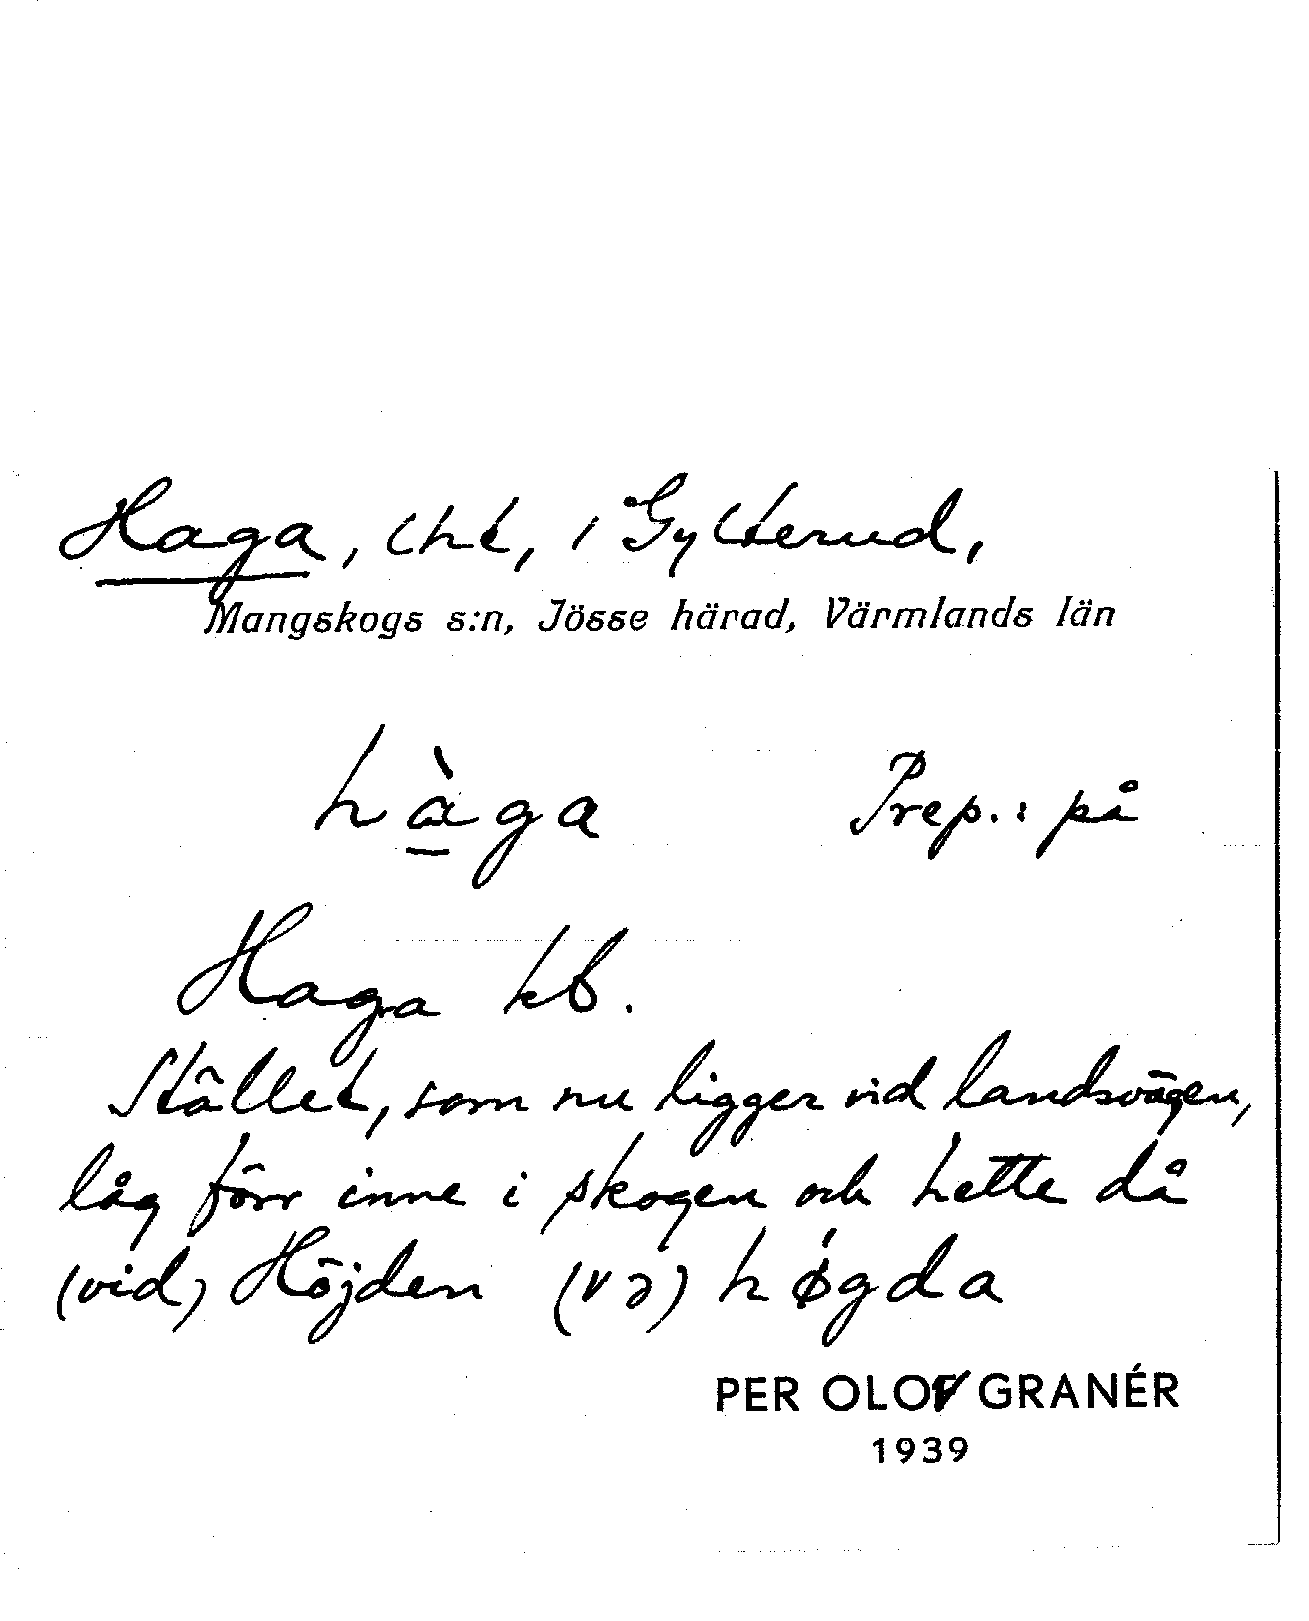 Haga, lht, i Gylterud,
Mangskogs s:n, Jösse härad, Värmlands län
hàga Prep.: på
Haga kb.
Stället, som nu ligger vid landsvägen,
låg förr inne i skogen och hette då
(vid) Höjden (və) høgda
PER OLOV GRANÉR
1939